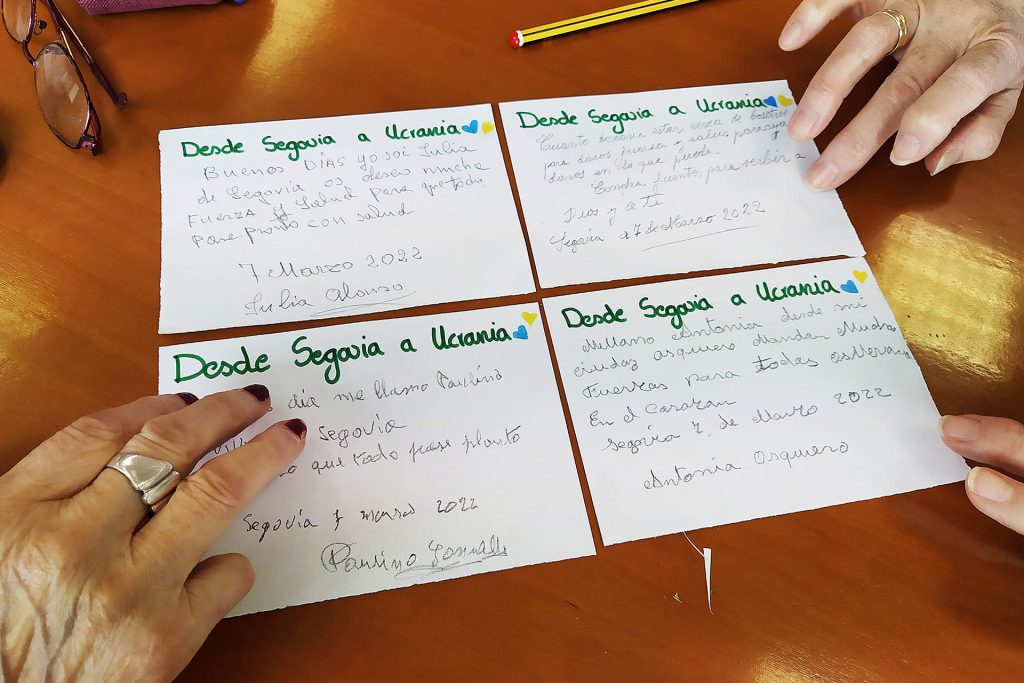 Desde Segovia a Ucrania
Buenos DÍAS yo soi Julia
de Segovia os deseo mucha
Fuerza y Salud para que todo
Pase pronto con salud
7 Marzo 2022
Julia Alonso
Desde Segovia a Ucrania
Cuanto estar cerca de
para daros fuerza y salus para
daros en lo que pueda
Concha fuentes para serbir a
Dios y a Te
Segovia a 7 de Marzo 2022
Desde Segovia a Ucrania
dia me llamo Paulino
Segovia
que todo pase
Segovia 7 marzo 2022
Paulino
Desde Segovia a Ucrania
Mellamo Antonia desde mi
Mucha
Fuerzas para todas
En el Corazon
Segovia 7. de Marzo 2022
Antonia Osquiero